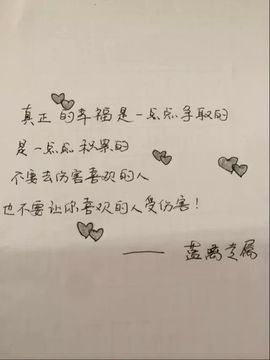 真正的幸福是一点点争取的
是一点点积累的
不要去伤害喜欢的人
也不要让你喜欢的人受伤害!
—— 蓝离专属